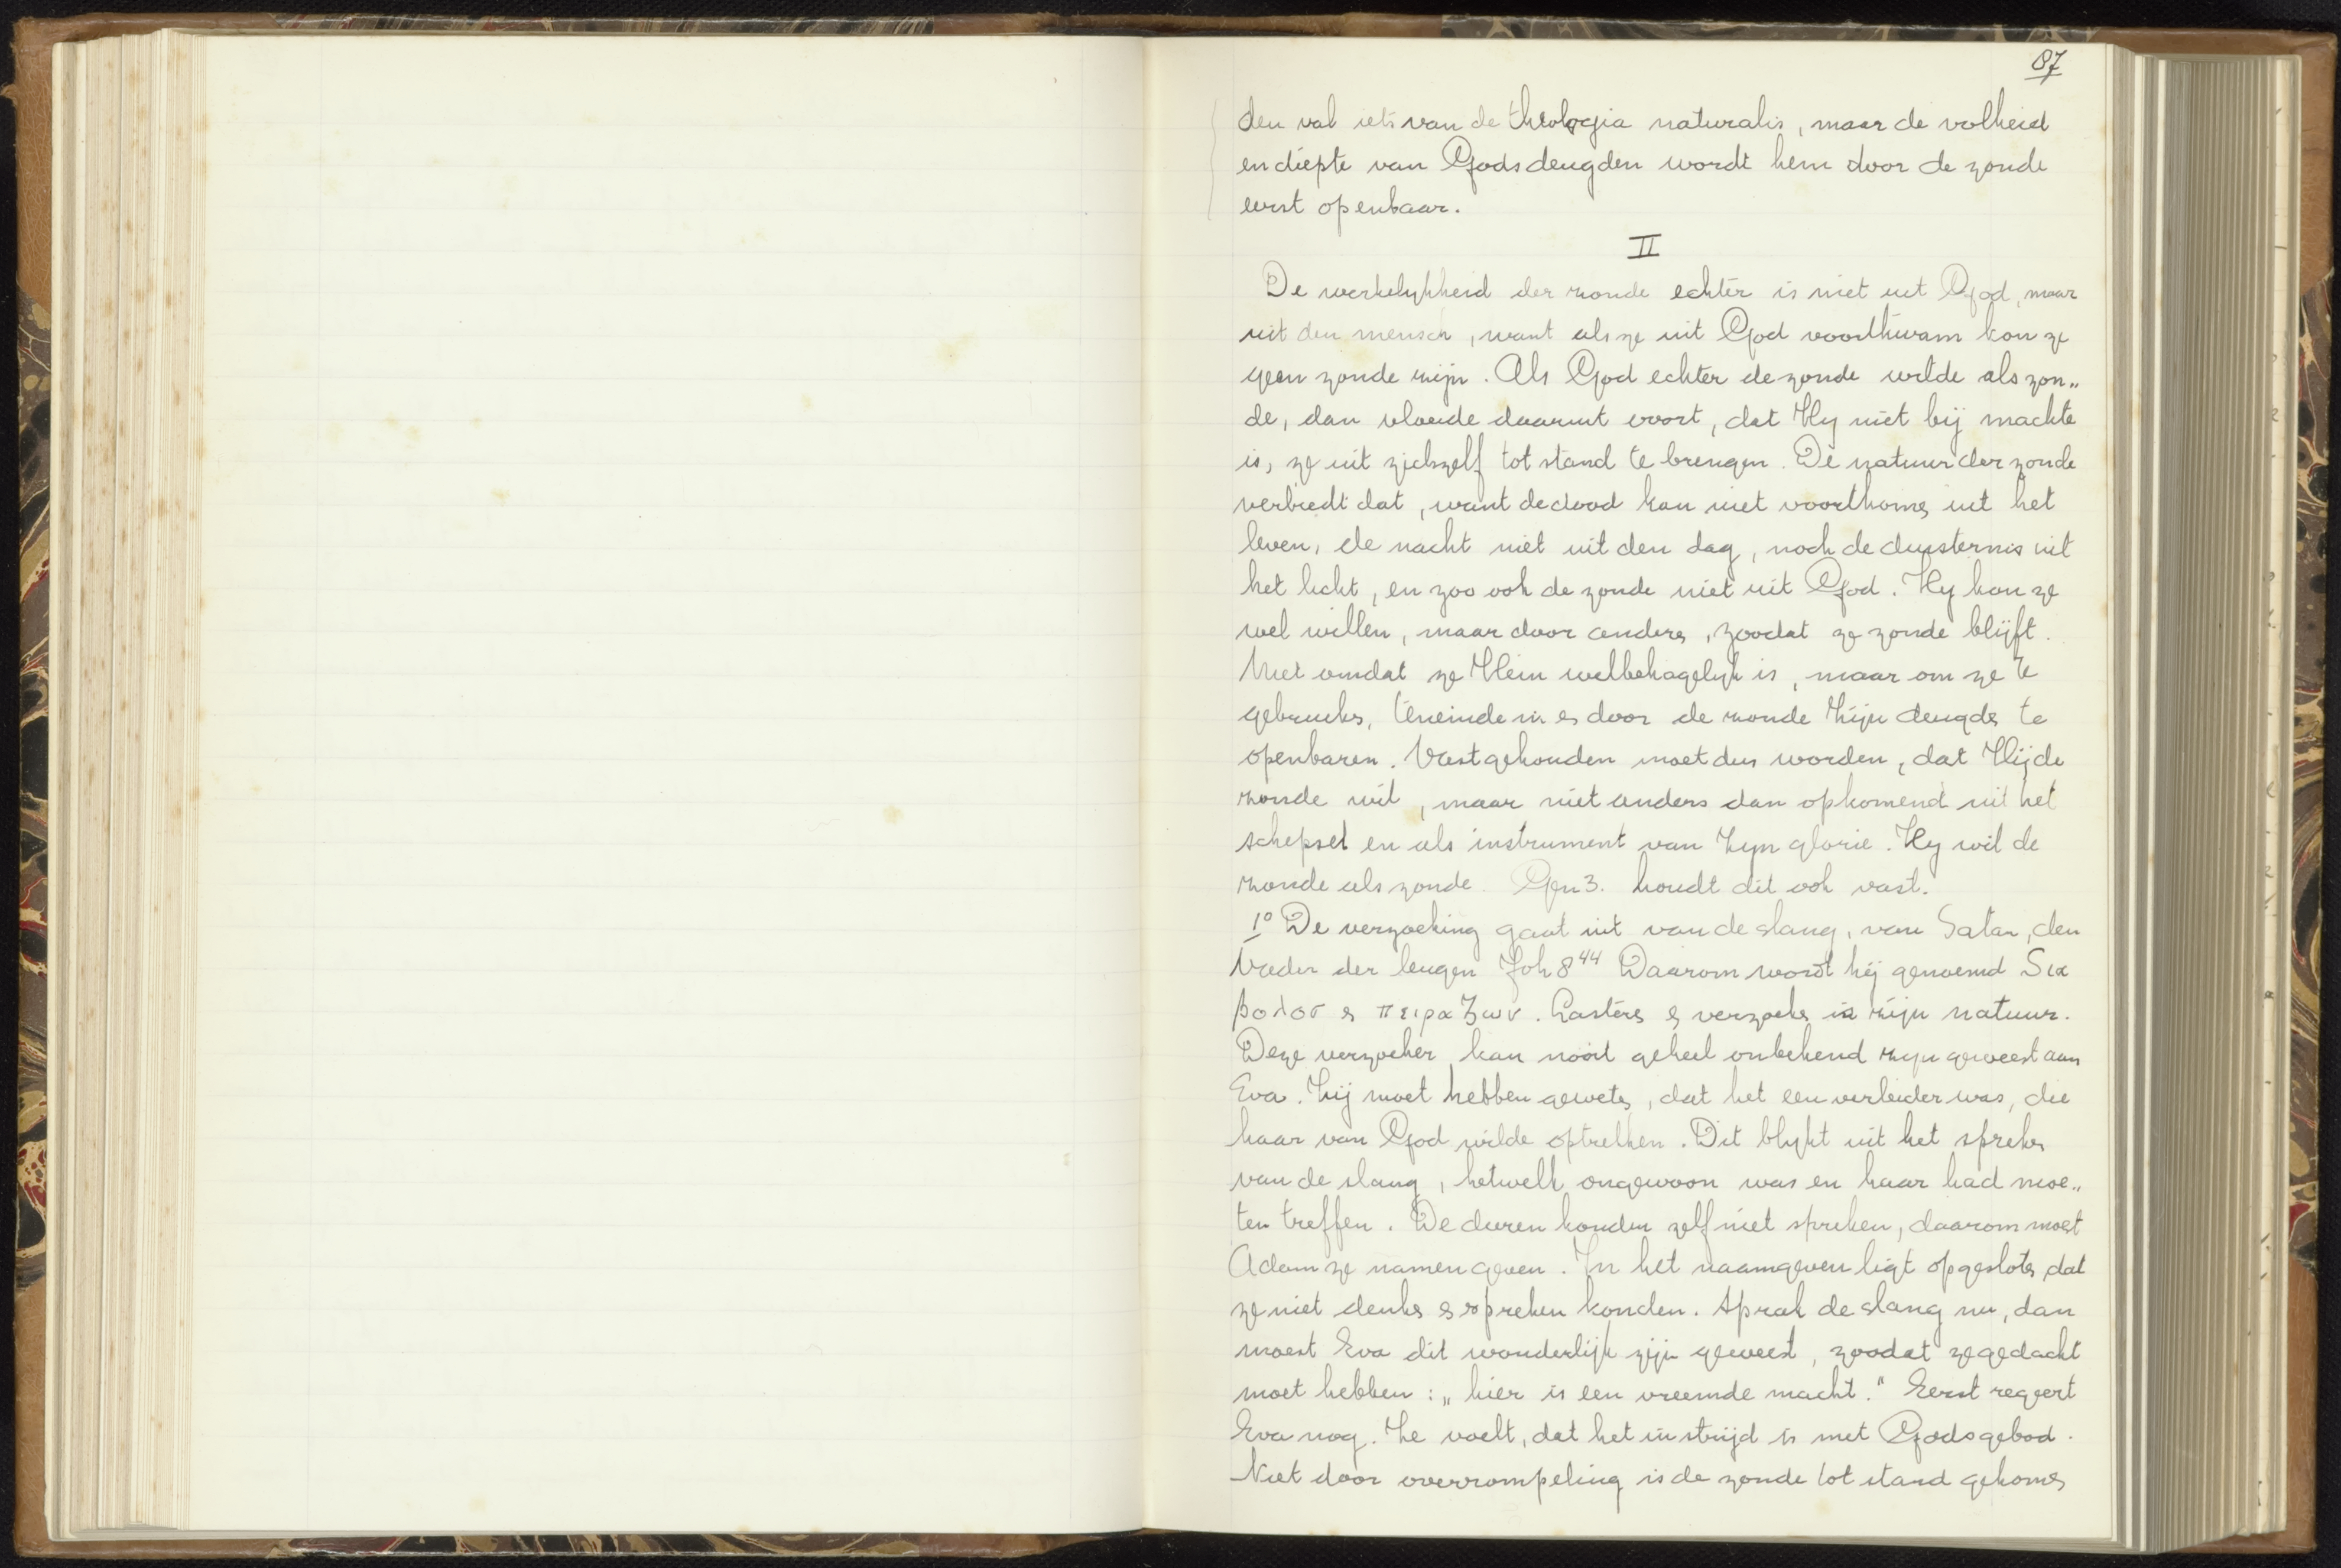 87
den val iets van de theologia naturalis, maar de volheid
en diepte van Gods deugden wordt hem door de zonde
eerst openbaar.
II
De werkelykheid der zonde echter is niet uit God, maar
uit den mensch, want als ze uit God voortkwam kon ze
geen zonde zijn. Als God echter de zonde wilde als zon„
de, dan vloeide daaruit voort, dat Hy niet bij machte
is, ze uit zichzelf tot stand te brengen. De natuur der zonde
verbiedt dat, want de dood kan niet voortkomen uit het
leven, de nacht niet uit den dag, noch de duisternis uit
het licht, en zoo ook de zonde niet uit God. Hy kon ze
wel willen, maar door anderen, zoodat ze zonde blijft.
Niet omdat ze Hem welbehagelyk is, maar om ze te
gebruiken, teneinde in en door de zonde Zijn deugden te
openbaren. Vastgehouden moet dus worden, dat Hij de
zonde wil, maar niet anders dan opkomend uit het
schepsel en als instrument van Zyn glorie. Hy wil de
zonde als zonde. Gen 3. houdt dit ook vast.
1º De verzoeking gaat uit van de slang, van Satan, den
Vader der leugen Joh 8 44 Daarom wordt hij genoemd Δια
βολοσ en πειραζων. Lasteren en verzoeken is zijn natuur.
Deze verzoeker kan nooit geheel onbekend zyn geweest aan
Eva. Zij moet hebben geweten, dat het een verleider was, die
haar van God wilde aftrekken. Dit blykt uit het spreken
van de slang, hetwelk ongewoon was en haar had moe„
ten treffen. De dieren konden zelf niet spreken, daarom moest
Adam ze namen geven. In het naamgeven ligt opgesloten, dat
ze niet denken en spreken konden. Sprak de slang nu, dan
moest Eva dit wonderlijk zijn geweest, zoodat ze gedacht
moet hebben: „hier is een vreemde macht." Eerst regeert
Eva nog. Ze voelt, dat het in strijd is met Gods gebod.
Niet door overrompeling is de zonde tot stand gekomen